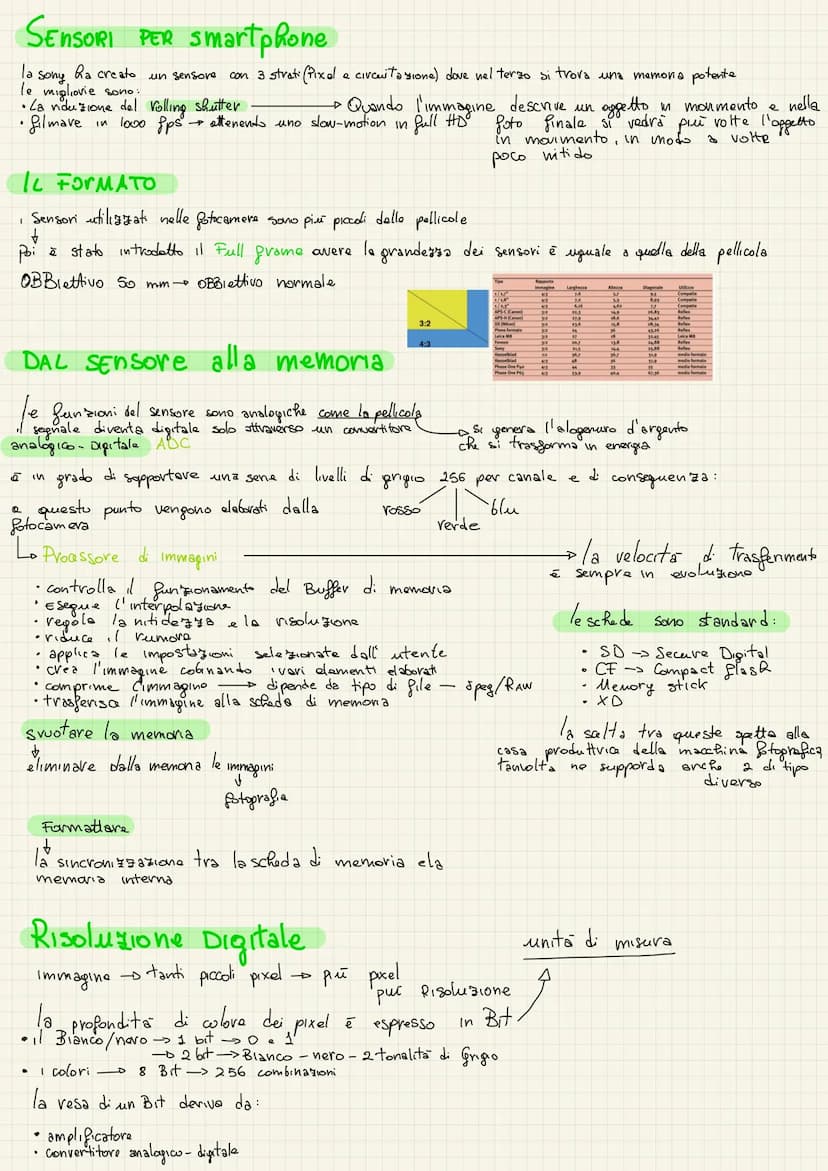 SENSORI PER smartphone
la sony ha creato un sensore con 3 strati (Pixel e circuitazione) dove nel terzo si trova una memoria potente
le migliorie sono:
• La riduzione del rolling shutter → Quando l'immagine descrive un oggetto in movimento e nella
• filmare in 1000 fps → ottenendo uno slow-motion in full HD
foto finale si vedrà più volte l'oggetto
in movimento, in modo a volte
poco nitido
IL FORMATO
i Sensori utilizzati nelle fotocamere sono più piccoli delle pellicole
↓
Poi è stato introdotto il Full frame ovvero la grandezza dei sensori è uguale a quella della pellicola
OBBiettivo 50 mm → OBBiettivo normale
3:2
4:3
DAL SENSORE alla memoria
le funzioni del sensore sono analogiche come la pellicola
il segnale diventa digitale solo attraverso un convertitore
→ Si genera l'alogenuro d'argento
che si trasforma in energia
analogico - Digitale ADC
è in grado di supportare una serie di livelli di grigio 256 per canale e di conseguenza:
rosso verde blu
a questo punto vengono elaborati dalla
fotocamera
↳ Processore di immagini → la velocità di Trasferimento
è sempre in evoluzione
• controlla il funzionamento del Buffer di memoria
• Esegue l'interpolazione
• regola la nitidezza e la risoluzione
• riduce il rumore
• applica le impostazioni selezionate dall'utente
• crea l'immagine combinando i vari elementi elaborati
• comprime l'immagine → dipende da tipo di file – Jpeg/RAW
• trasferisce l'immagine alla scheda di memoria
le schede sono standard:
• SD → Secure Digital
• CF → Compact flash
• Memory stick
• XD
la scelta tra queste spetta alla
casa produttrice della macchina fotografica
talvolta ne supporta anche 2 di tipo
diverso
svuotare la memoria
↓
eliminare dalla memoria le immagini
↓
fotografie
Formattare
↓
la sincronizzazione tra la scheda di memoria e la
memoria interna
Risoluzione Digitale
unità di misura
Immagine → tanti piccoli pixel → più pixel
più Risoluzione
la profondità di colore dei pixel è espresso in Bit
• il Bianco/nero → 1 bit → 0 e 1
→ 2 bit → Bianco - nero - 2 tonalità di Grigio
• i colori → 8 Bit → 256 combinazioni
la resa di un Bit deriva da:
• amplificatore
• convertitore analogico - digitale